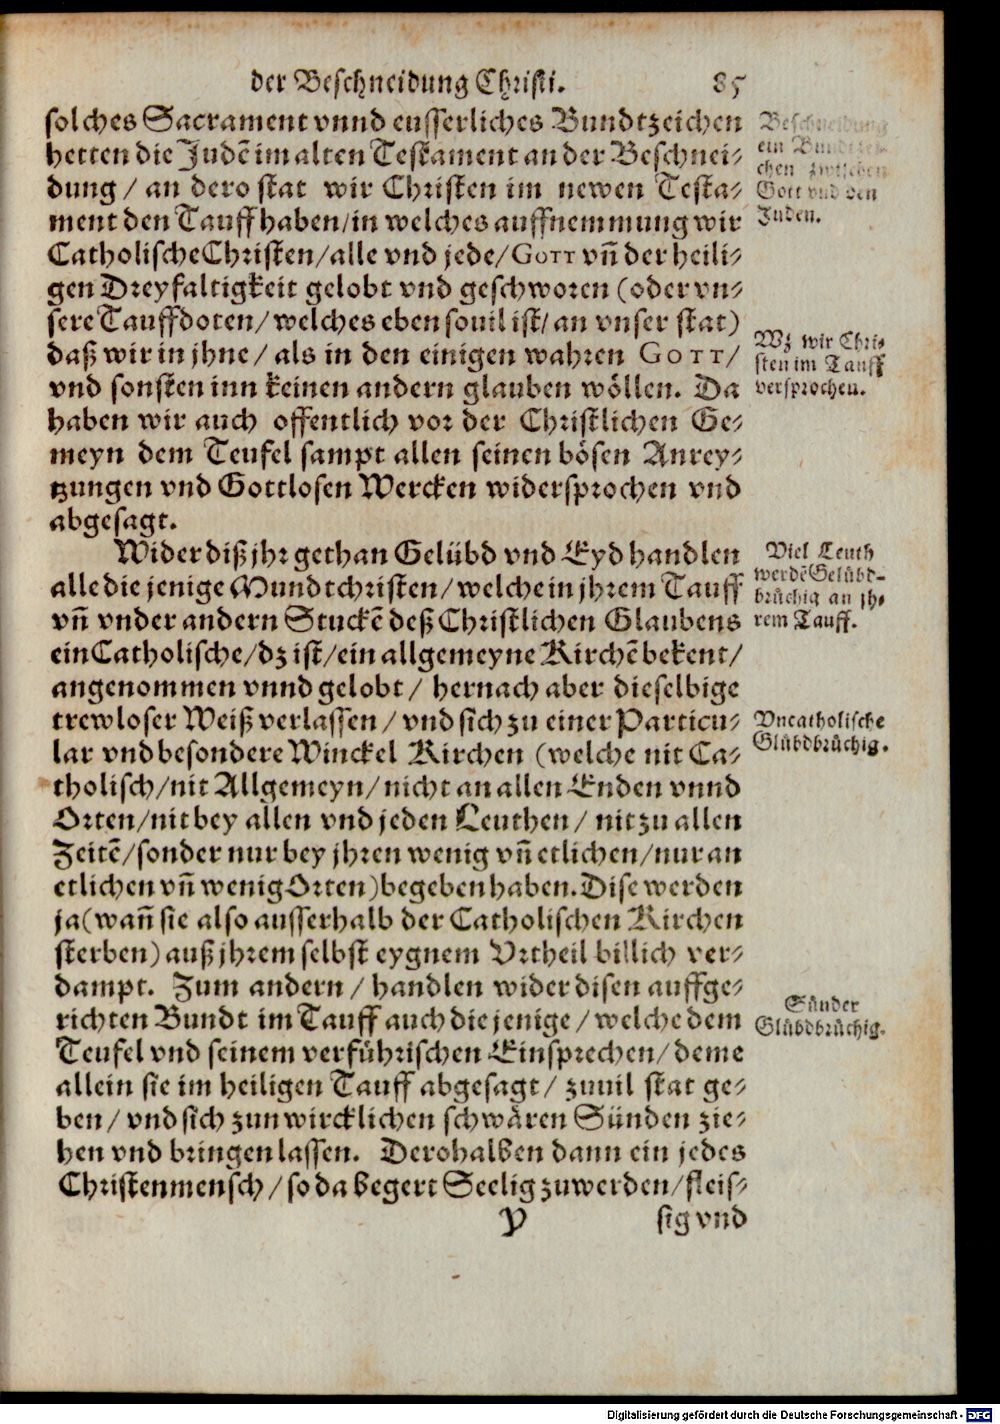 der Beschneidung Christi. 85
solches Sacrament vnnd eusserliches Bundtzeichen
hetten die Judẽ im alten Testament an der Beschnei-
dung / an dero stat wir Christen im newen Testa-
ment den Tauff haben/in welches auffnemmung wir
Catholische Christen/alle vnd jede/GOTT vñ der heili-
gen Dreyfaltigkeit gelobt vnd geschworen (oder vn-
sere Tauffdoten/welches eben souil ist/an vnser stat)
daß wir in jhne/als in den einigen wahren GOTT/
vnd sonsten inn keinen andern glauben wöllen. Da
haben wir auch offentlich vor der Christlichen Ge-
meyn dem Teufel sampt allen seinen bösen Anrey-
tzungen vnd Gottlosen Wercken widersprochen vnd
abgesagt.
Wider diß jhr gethan Gelübd vnd Eyd handlen
alle die jenige Mundtchristen/welche in jhrem Tauff
vñ vnder andern Stuckẽ deß Christlichen Glaubens
ein Catholische/dz ist/ein allgemeyne Kirchẽ bekent/
angenommen vnnd gelobt/ hernach aber dieselbige
trewloser Weiß verlassen/vnd sich zu einer Particu-
lar vnd besondere Winckel Kirchen (welche nit Ca-
tholisch/nit Allgemeyn/nicht an allen Enden vnnd
Orten/nit bey allen vnd jeden Leuthen/ nit zu allen
Zeitẽ/sonder nur bey jhren wenig vñ etlichen/nur an
etlichen vñ wenig Orten) begeben haben. Dise werden
ja (wañ sie also ausserhalb der Catholischen Kirchen
sterben) auß jhrem selbst eygnem Vrtheil billich ver-
dampt. Zum andern/handlen wider disen auffge-
richten Bundt im Tauff auch die jenige/welche dem
Teufel vnd seinem verführischen Einsprechen/deme
allein sie im heiligen Tauff abgesagt/ zuuil stat ge-
ben/vnd sich zun wircklichen schwären Sünden zie-
hen vnd bringen lassen. Derohalben dann ein jedes
Christenmensch/so da begert Seelig zuwerden/fleis-
Y sig vnd
Beschneidung
ein Bundtzei-
chen zwischen
Gott vnd den
Juden.
Wz wir Chri-
sten im Tauff
versprochen.
Viel Leuth
werdẽ Gelübd-
brüchig an jh-
rem Tauff.
Vncatholische
Glübdbrüchig.
Sünder
Glübdbrüchig.
Digitalisierung gefördert durch die Deutsche Forschungsgemeinschaft - DFG